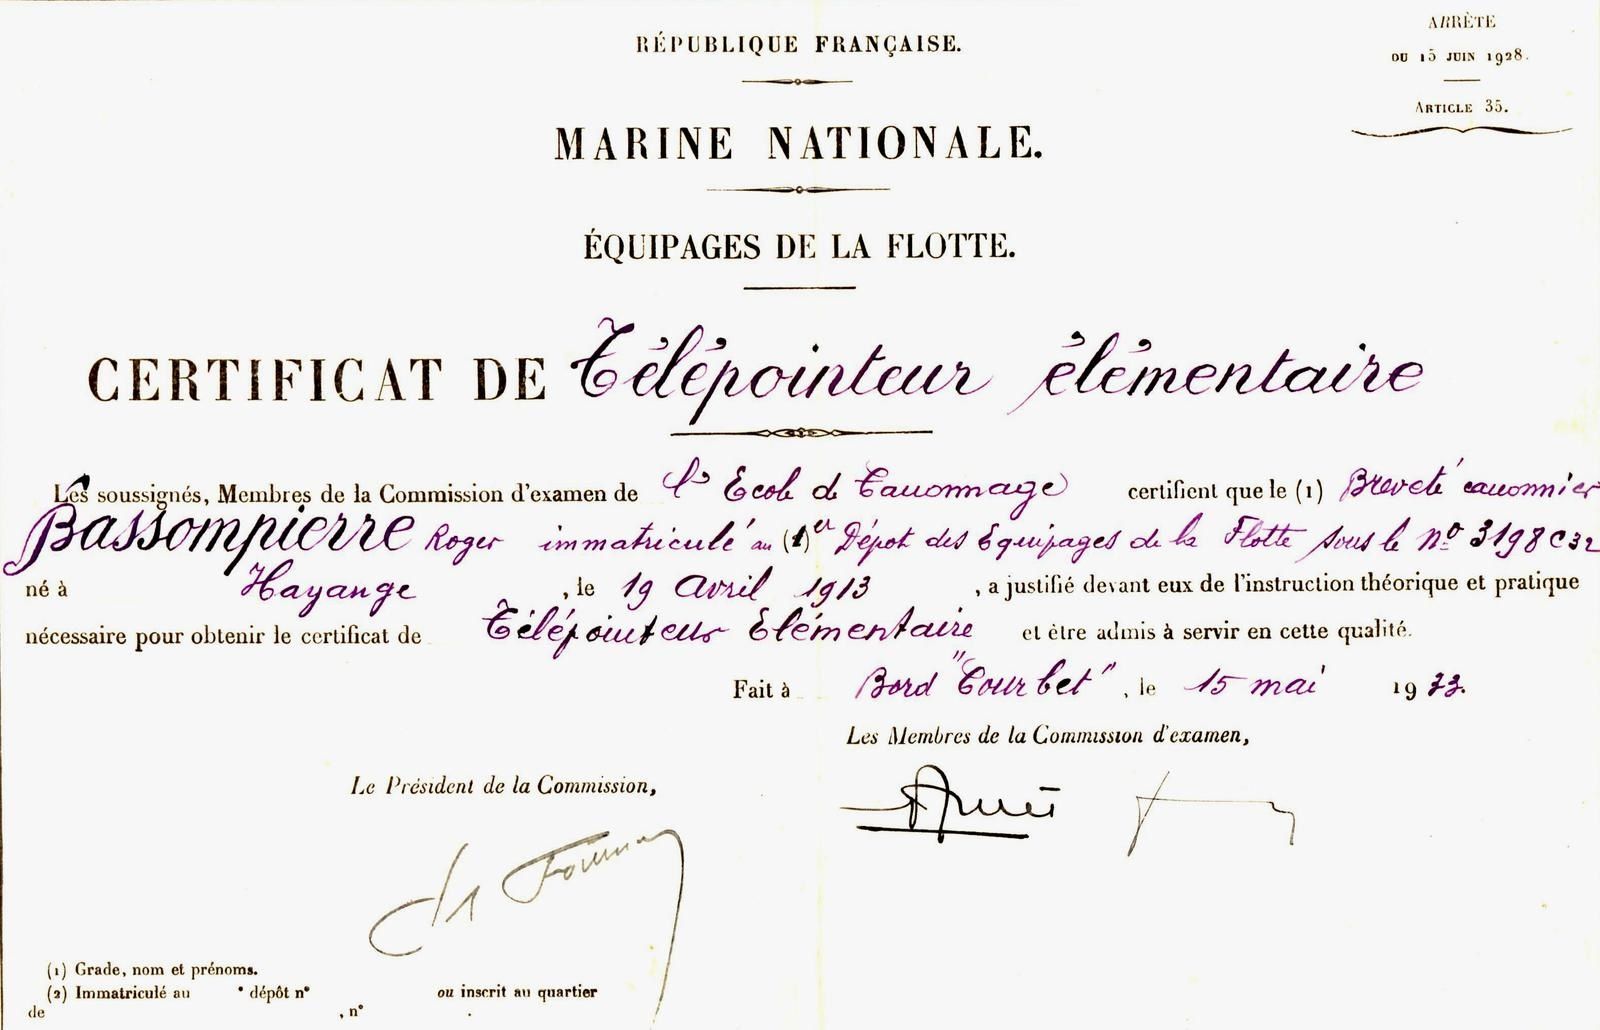 RÉPUBLIQUE FRANÇAISE.
ARRÊTÉ
DU 15 JUIN 1928.
ARTICLE 35.
MARINE NATIONALE.
ÉQUIPAGES DE LA FLOTTE.
CERTIFICAT DE Télépointeur élémentaire
Les soussignés, Membres de la Commission d'examen de l'Ecole de Canonnage certifient que le (1) Breveté canonnier
Bassompierre Roger immatriculé au (1)er Dépôt des Equipages de la Flotte sous le No 3198 C 32
né à Hayange, le 19 Avril 1913, a justifié devant eux de l'instruction théorique et pratique
nécessaire pour obtenir le certificat de Télépointeur Elémentaire et être admis à servir en cette qualité.
Fait à Bord "Courbet", le 15 mai 1933.
Les Membres de la Commission d'examen,
Le Président de la Commission,
(1) Grade, nom et prénoms.
(2) Immatriculé au • dépôt n° ou inscrit au quartier
de , n° .